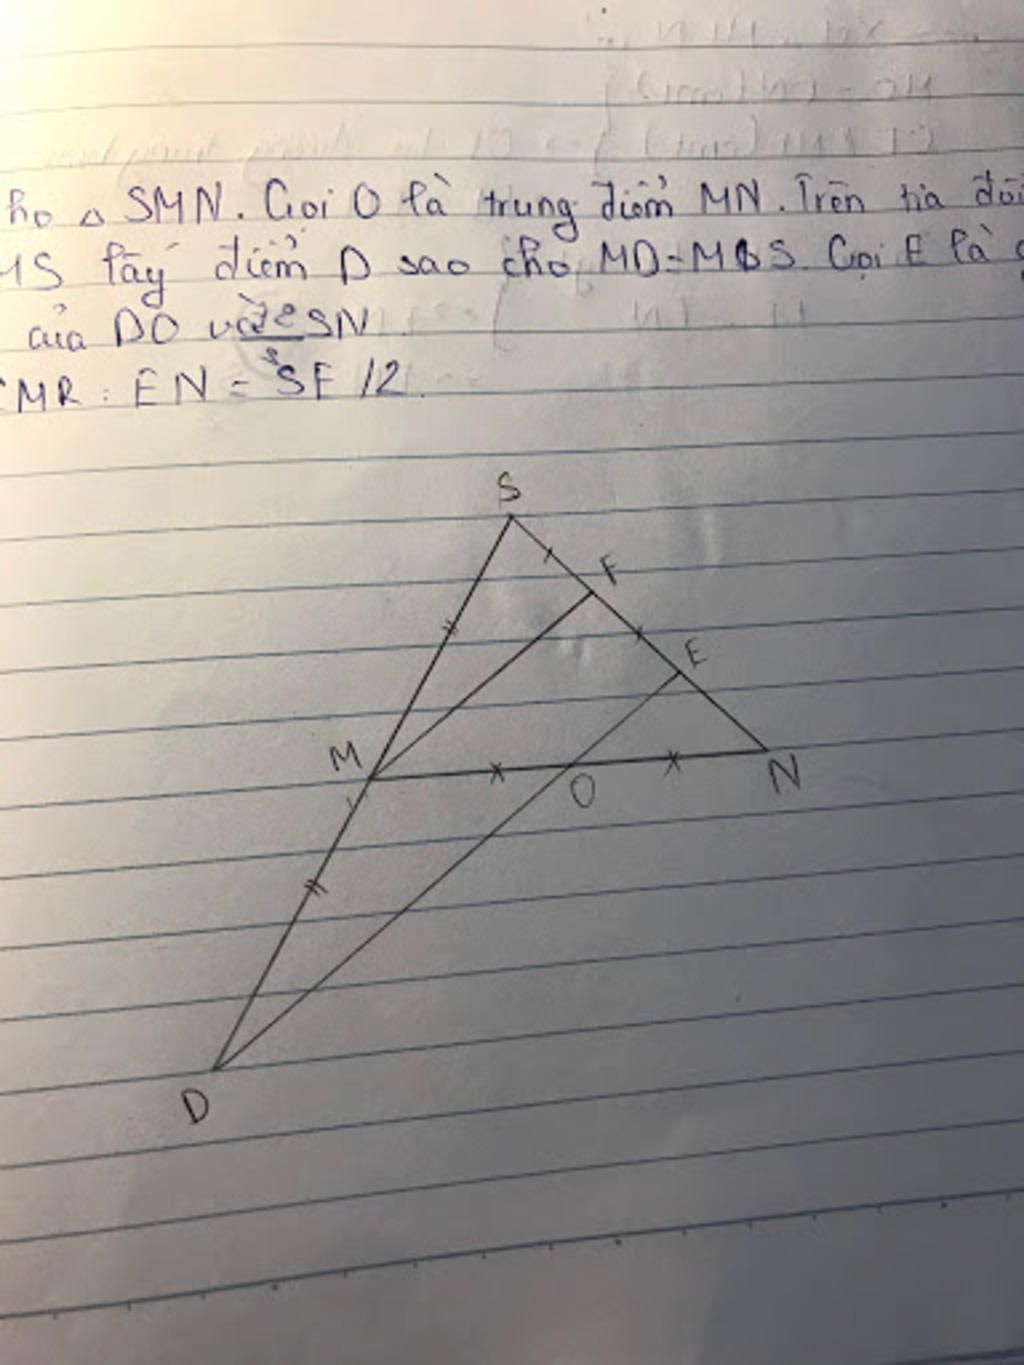 ho △ SMN. Gọi O là trung điểm MN. Trên tia đối
MS lấy điểm D sao cho MD = MS. Gọi E là g
của DO và SN.
CMR: EN = SE/2.
S
F
E
M
O
N
D